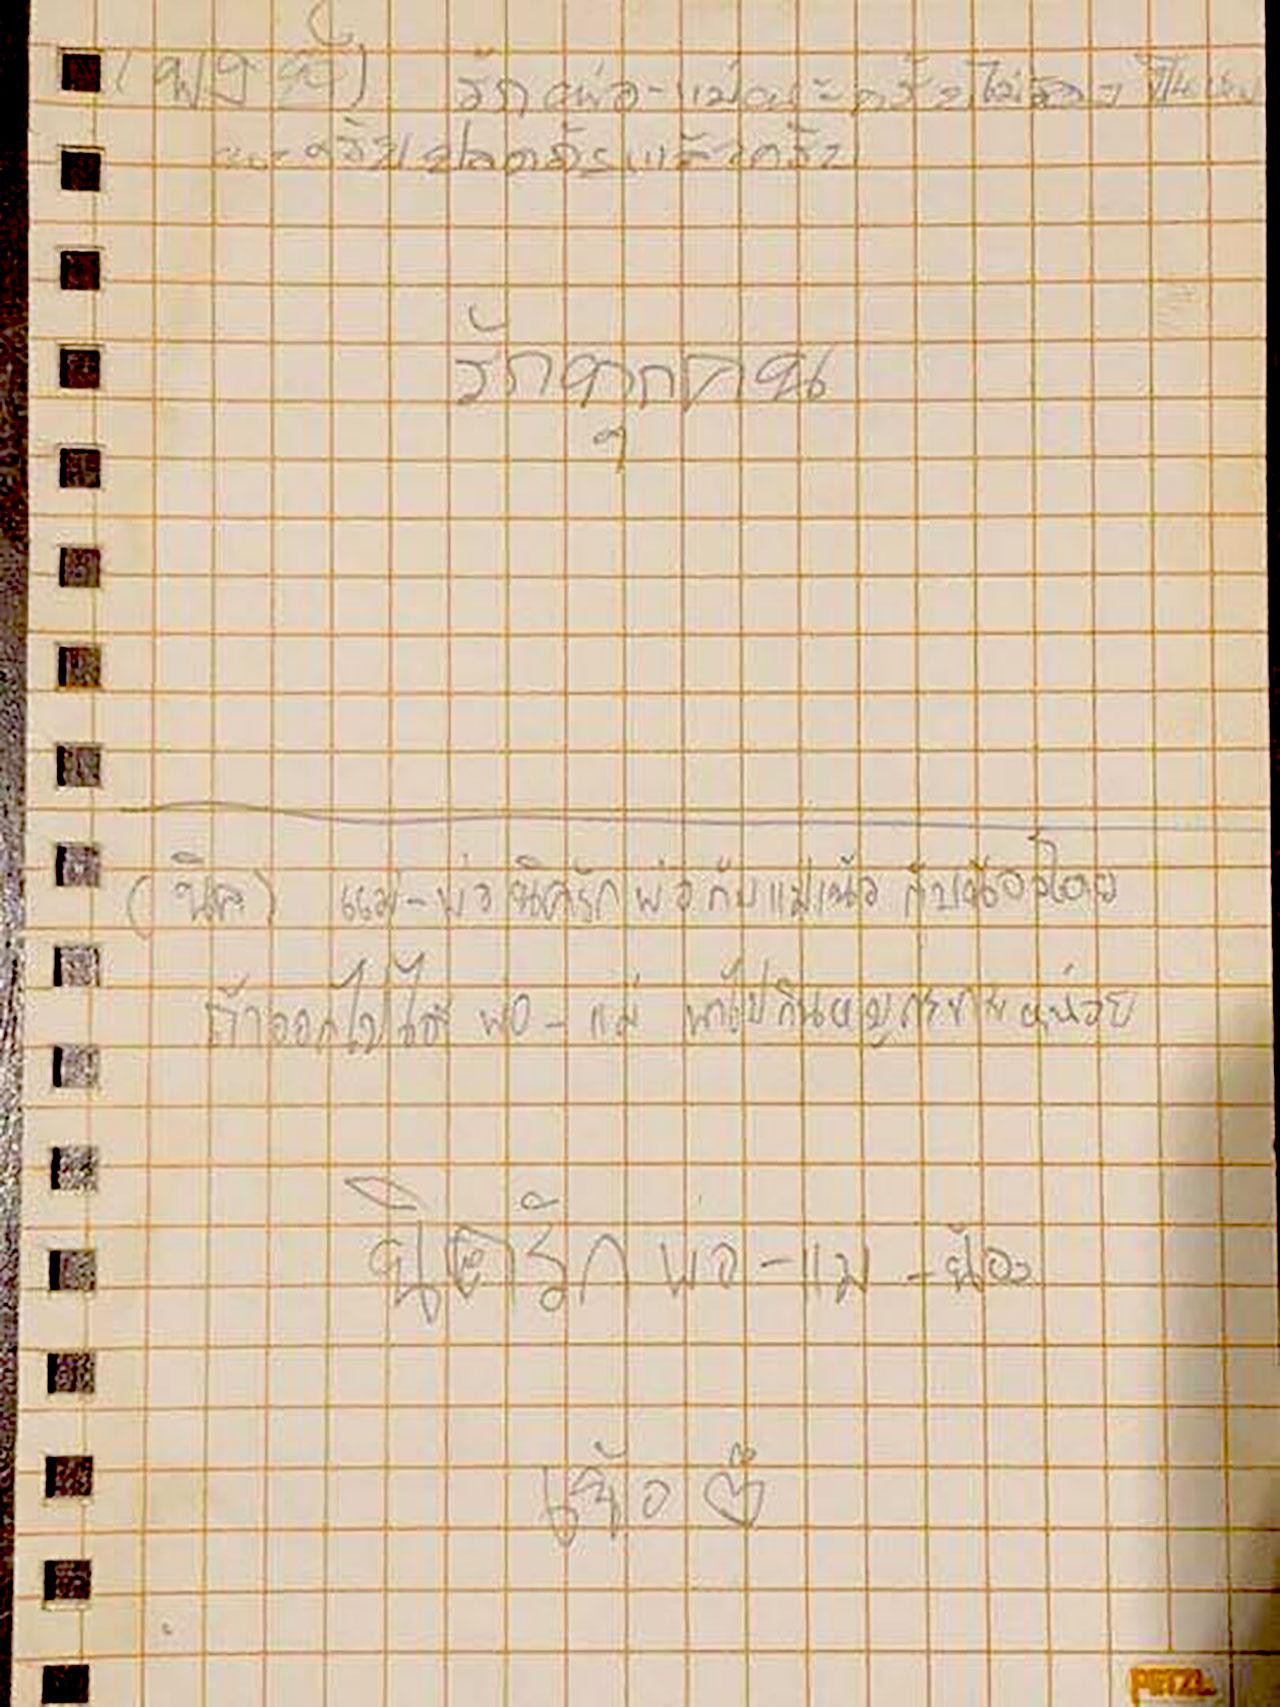 (มงคล) รักพ่อ-แม่นะครับไม่ต้องเป็นห่วง
นะครับปลอดภัยแล้วครับ
รักทุกคน
(นิค) แม่-พ่อนิครักพ่อกับแม่เน้อ กับน้องโดย
ถ้าออกไปได้ พ่อ-แม่ พาไปกินหมูกระทะหน่อย
นิครัก พ่อ-แม่-น้อง
เน้อ
PETZL